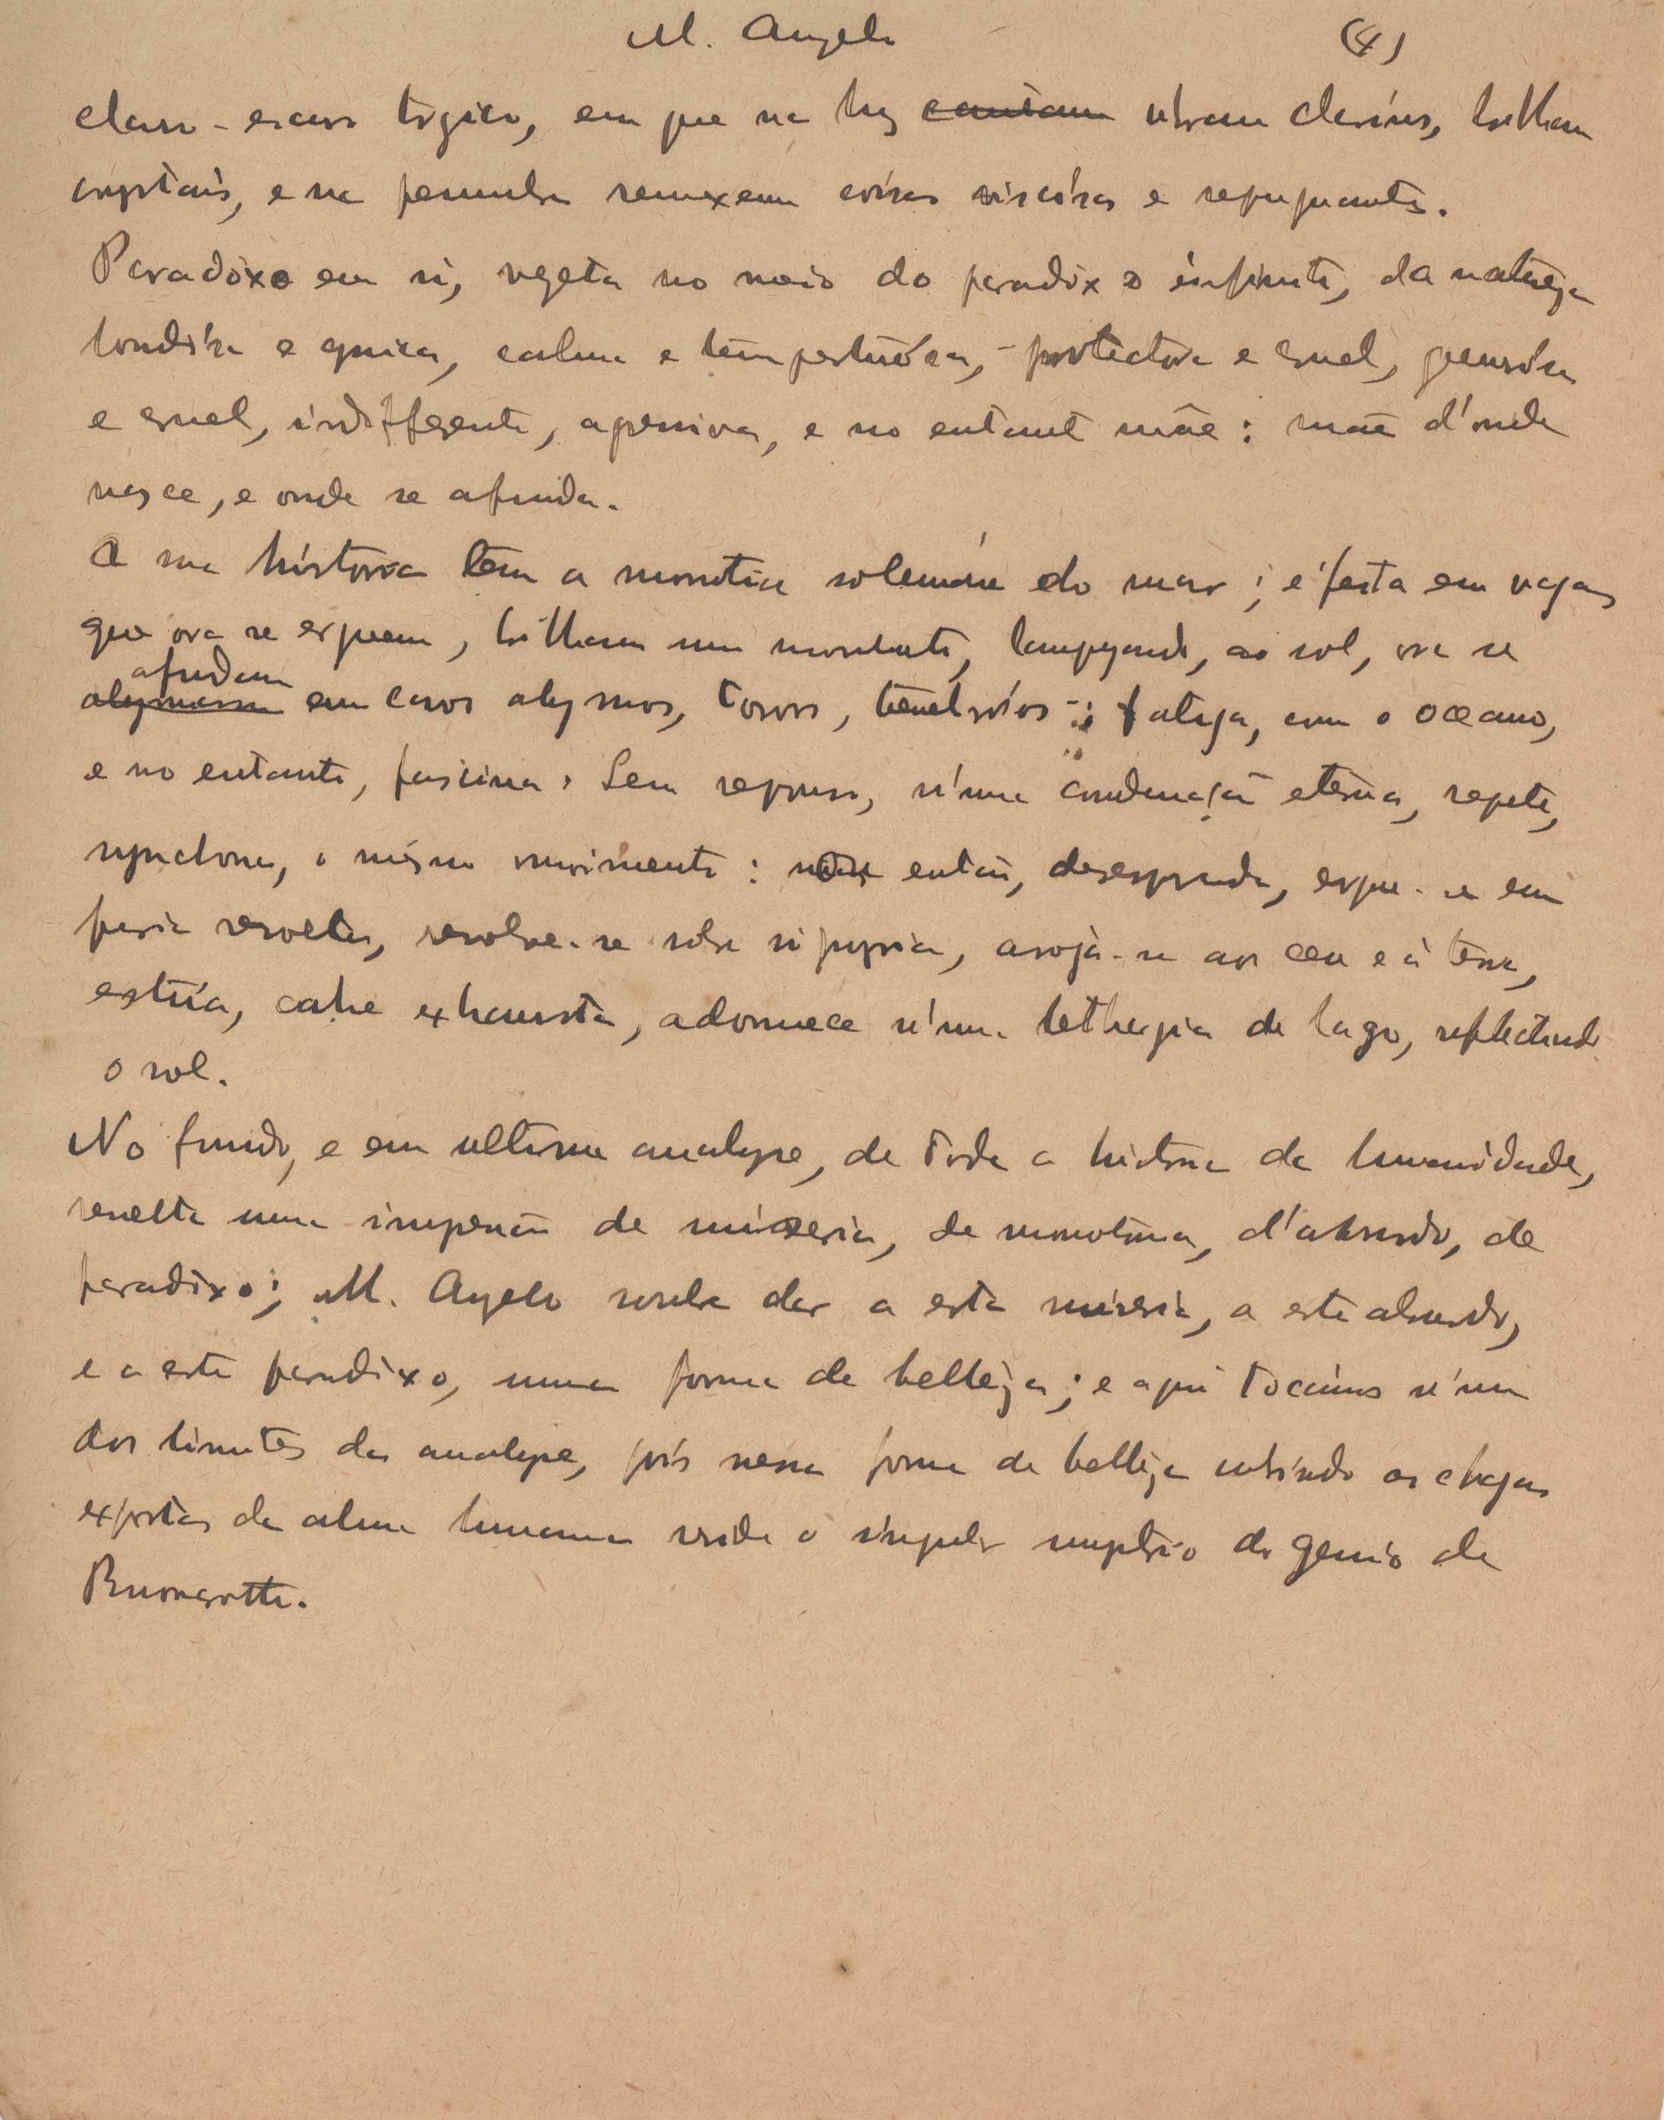 M. Angelo (4)
claro-escuro tragico, em que na luz cantam vibram clarins, brilham
crystais, e na penumbra remexem coisas viscósas e repugnantes.
Paradoxo em si, vegeta no meio do paradoxo infinito, da natureza
bondósa e cynica, calma e tempestuósa, - protectora e cruel, generósa
e cruel, indifferente, apensiva, e no entanto mãe: mãe d'onde
nasce, e onde se afunda.
A sua história tem a monotia solemne do mar; é feita em vagas
que ora se erguem, brilham um momento, lampejando, ao sol, ora se
afundam
abysmam em cavos abysmos, torvos, tenebrósos -; fatiga, como o oceano,
e no entanto, fascina. Sem repouso, n'uma condenação eterna, repete,
o mesmo movimento: então, desesperada, ergue-se em
furia revolta, revolve-se sobre si propria, arroja-se aos ceu e á terra,
estúa, cahe exhausta, adormece n'uma lethargia de lago, reflectindo
o sol.
No fundo, e em ultima analyse, de toda a historia da humanidade,
resulta uma impressão de miseria, de monotonia, d'absurdo, de
paradoxo; M. Angelo soube dar a esta miseria, a este absurdo,
e a este paradoxo, uma forma de belleza; e aqui tocâmos n'um
dos limites da analyse, pois nessa forma de belleza cobrindo as chagas
expostas da alma humana reside o singular mysterio do genio de
Buonarotti.